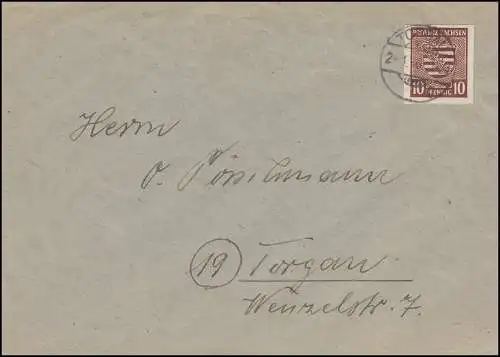 PROVINZ SACHSEN
10 10
PFENNIG
Herrn
O. Pösselmann
19 Torgau
Wenzelstr. 7.